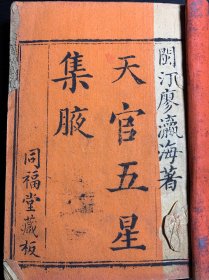 閩汀廖瀛海著
天官五星
集腋
同福堂藏板